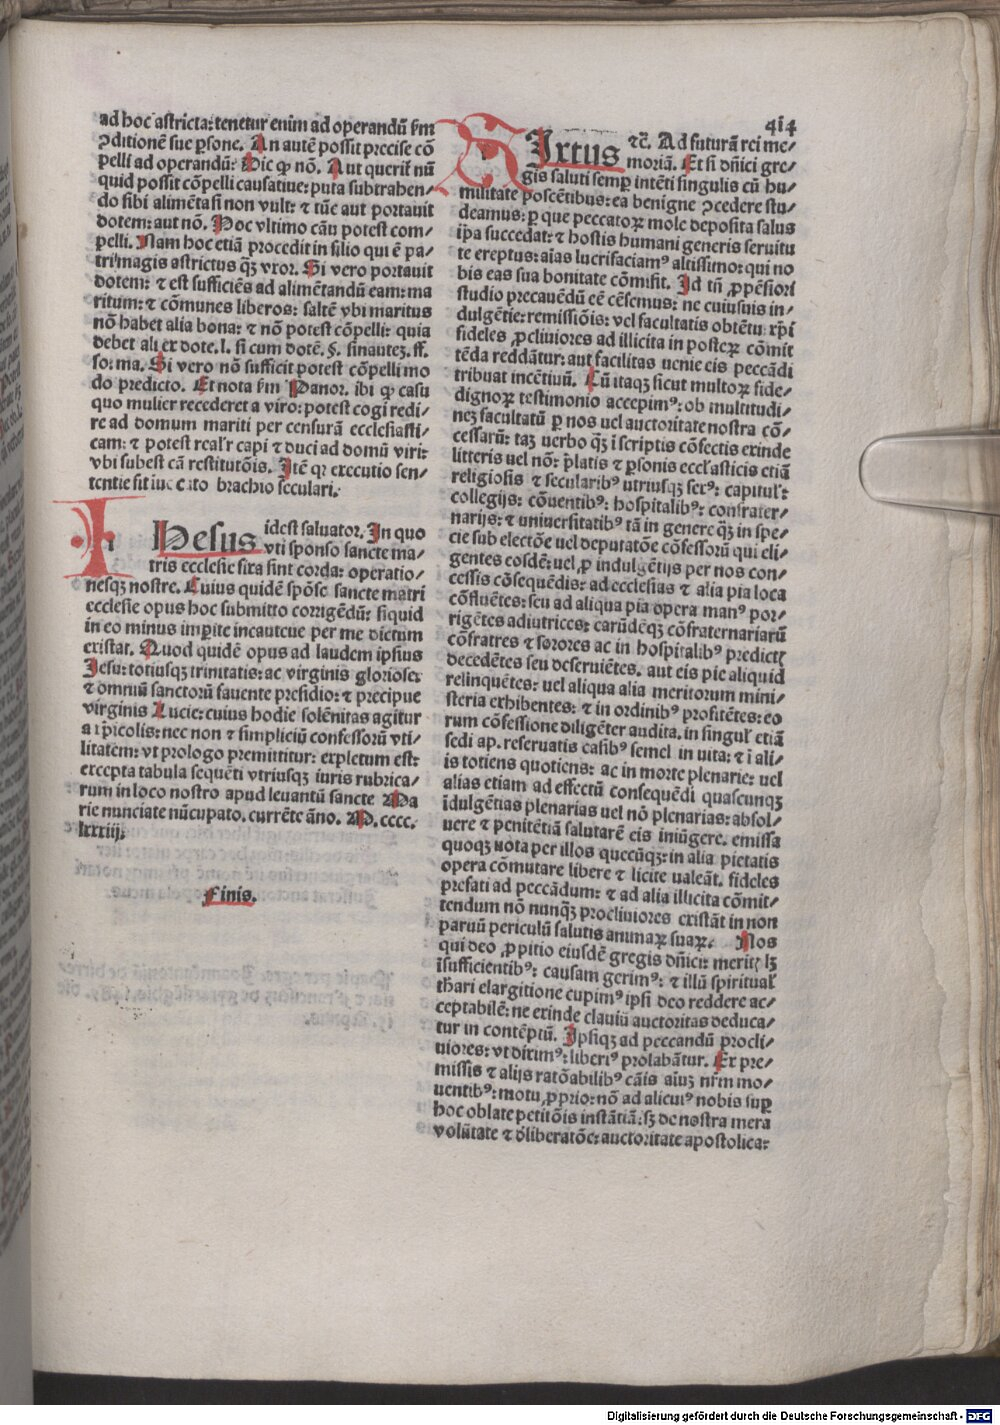 414
ad hoc astricta: tenetur enim ad operandū ẜm
ꝯditionē sue ꝑsone. An autē possit precise cō
pelli ad operandū: Dic ꝙ nō. Aut querit̄ nū
quid possit cōpelli causatiue: puta subtrahen⸗
do sibi alimēta si non vult: ⁊ tūc aut portauit
dotem: aut nō. Hoc vltimo cāu potest com⸗
pelli. Nam hoc etiā procedit in filio qui ē pa⸗
tri magis astrictus qȝ vxor. Si vero portauit
dotem: ⁊ est sufficiēs ad alimētandū eam: ma
ritum: ⁊ cōmunes liberos: saltē vbi maritus
nō habet alia bona: ⁊ nō potest cōpelli: quia
debet ali ex dote. l. si cum dotē. §. sinautez. ff.
so. ma. Si vero nō sufficit potest cōpelli mo
do predicto. Et nota ẜm Panor. ibi ꝙ casu
quo mulier recederet a viro: potest cogi redi⸗
re ad domum mariti per censurā ecclesiasti⸗
cam: ⁊ potest real'r capi ⁊ duci ad domū viri:
vbi subest cā restitutōis. Itē qr executio sen⸗
tentie fit brachio seculari.
IHesus idest saluator. In quo
vti sponso sancte ma⸗
tris ecclesie sita sint corda: operatio⸗
nesqȝ nostre. Cuius quidē spōse sancte matri
ecclesie opus hoc submitto corrigēdū: siquid
in eo minus imꝑite incauteue per me dictum
existat. Quod quidē opus ad laudem ipsius
Iesu: totiusqȝ trinitatis: ac virginis gloriose:
⁊ omniū sanctorū fauente presidio: ⁊ precipue
virginis Lucie: cuius hodie solēnitas agitur
a xp̄icolis: nec non ⁊ simpliciū confessorū vti⸗
litatem: vt prologo premittitur: expletum est:
excepta tabula sequēti vtriusqȝ iuris rubrica⸗
rum in loco nostro apud leuantū sancte Ma
rie nunciate nūcupato. currēte āno. M. cccc.
lxxxiij.
Finis.
SIxtus ⁊c̄. Ad futurā rei me⸗
moriā. Et si dn̄ici gre⸗
gis saluti semꝑ intēti singulis cū hu⸗
militate poscētibus: ea benigne ꝓcedere stu⸗
deamus: ꝑ que peccatoꝝ mole deposita salus
ip̄a succedat: ⁊ hostis humani generis seruitu
te ereptus: aīas lucrifaciamꝰ altissimo: qui no
bis eas sua bonitate cōmisit. Id tn̄ ꝓpēsiori
studio precauēdū eē cēsemus: ne cuiusuis in⸗
dulgētie: remissiōis: vel facultatis obtētu xp̄i
fideles ꝓcliuiores ad illicita in posteꝝ cōmit
tēda reddātur: aut facilitas uenie eis peccādi
tribuat incētiuū. Cū itaqȝ sicut multoꝝ fide⸗
dignoꝝ testimonio accepimꝰ: ob multitudi⸗
neȝ facultatū ꝑ nos uel auctoritate nostra cō⸗
cessarū: taȝ uerbo qȝ ī scriptis cōfectis exinde
litteris uel nō: p̄latis ⁊ ꝑsonis eccl'asticis etiā
religiosis ⁊ secularibꝰ utriusqȝ sexꝰ: capitul':
collegijs: cōuentibꝰ: hospitalibꝰ: confrater⸗
narijs: ⁊ uniuersitatibꝰ tā in genere qȝ in spe⸗
cie sub electōe uel deputatōe cōfessorū qui eli⸗
gentes eosdē: uel ꝓ indulgētijs per nos con⸗
cessis cōsequēdis: ad ecclesias ⁊ alia pia loca
cōfluētes: seu ad aliqua pia opera manꝰ por⸗
rigētes adiutrices: earūdēqȝ cōfraternariarū
cōfratres ⁊ sorores ac in hospitalibꝰ predictꝭ
decedētes seu deseruiētes. aut eis pie aliquid
relinquētes: uel aliqua alia meritorum mini⸗
steria exhibentes: ⁊ in ordinibꝰ profitētes: eo
rum cōfessione diligēter audita. in singul' etiā
sedi ap. reseruatis casibꝰ semel in uita: ⁊ ī ali⸗
is totiens quotiens: ac in morte plenarie: uel
alias etiam ad effectū consequēdi quascunqȝ
īdulgētias plenarias uel nō plenarias: absol⸗
uere ⁊ penitētiā salutarē eis iniūgere. emissa
quoqȝ uota per illos quecūqȝ: in alia pietatis
opera cōmutare libere ⁊ licite ualeāt. fideles
prefati ad peccādum: ⁊ ad alia illicita cōmit⸗
tendum nō nunqȝ procliuiores existāt in non
paruū periculū salutis animaꝝ suaꝝ. Nos
qui deo ꝓpitio eiusdē gregis dn̄ici: meritꝭ lȝ
īsufficientibꝰ: causam gerimꝰ: ⁊ illū spiritual'
th̄ari elargitione cupimꝰ ipsi deo reddere ac⸗
ceptabilē: ne exinde clauiū auctoritas deduca⸗
tur in contēptū. Ipsiqȝ ad peccandū procli⸗
uiores: vt diximꝰ: liberiꝰ prolabātur. Ex pre⸗
missis ⁊ alijs ratōabilibꝰ cāis aīuȝ nr̄m mo⸗
uentibꝰ: motu ꝓprio: nō ad alicuiꝰ nobis suꝑ
hoc oblate petitōis instātiā: sȝ de nostra mera
volūtate ⁊ deliberatōe: auctoritate apostolica:
Digitalisierung gefördert durch die Deutsche Forschungsgemeinschaft - DFG